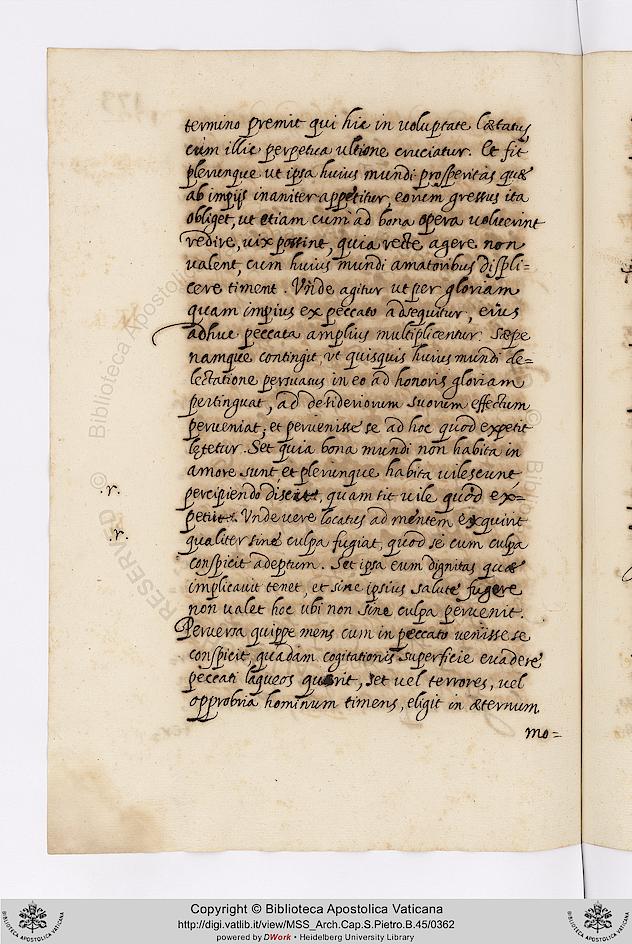 termino premit qui hic in uoluptate lætatus,
cum illic perpetua ultione cruciatur. Et fit
plerunque ut ipsa huius mundi prosperitas quæ
ab impijs inaniter appetitur, eorum gressus ita
obliget, ut etiam cum ad bona opera uoluerint
redire, uix possint, quia recte agere non
ualent, cum huius mundi amatoribus displi=
cere timent. Vnde agitur ut per gloriam
quam impius ex peccato adsequitur, eius
adhuc peccata amplius multiplicentur. Sæpe
namque contingit, ut quisquis huius mundi de=
lectatione persuasus in eo ad honoris gloriam
pertinguat, ad desideriorum suorum effectum
perueniat, et peruenisse se ad hoc quod expetit
lętetur. Set quia bona mundi non habita in
amore sunt, et plerunque habita uilescunt,
.r. percipiendo discit, quam sit uile quod ex=
petiit. Vnde uere locatus ad mentem exquirit
.r. qualiter sine culpa fugiat, quod se cum culpa
conspicit adeptum. Set ipsa eum dignitas quæ
implicauit tenet, et sine ipsius salute fugere
non ualet hoc ubi non sine culpa peruenit.
Peruersa quippe mens cum in peccato uenisse se
conspicit, quadam cogitationis superficie euadere
peccati laqueos quærit, set uel terrores, uel
opprobria hominum timens, eligit in æternum
mo=
RESERVED © Biblioteca Apostolica
© Biblio
Copyright © Biblioteca Apostolica Vaticana
http://digi.vatlib.it/view/MSS_Arch.Cap.S.Pietro.B.45/0362
powered by DWork • Heidelberg University Library